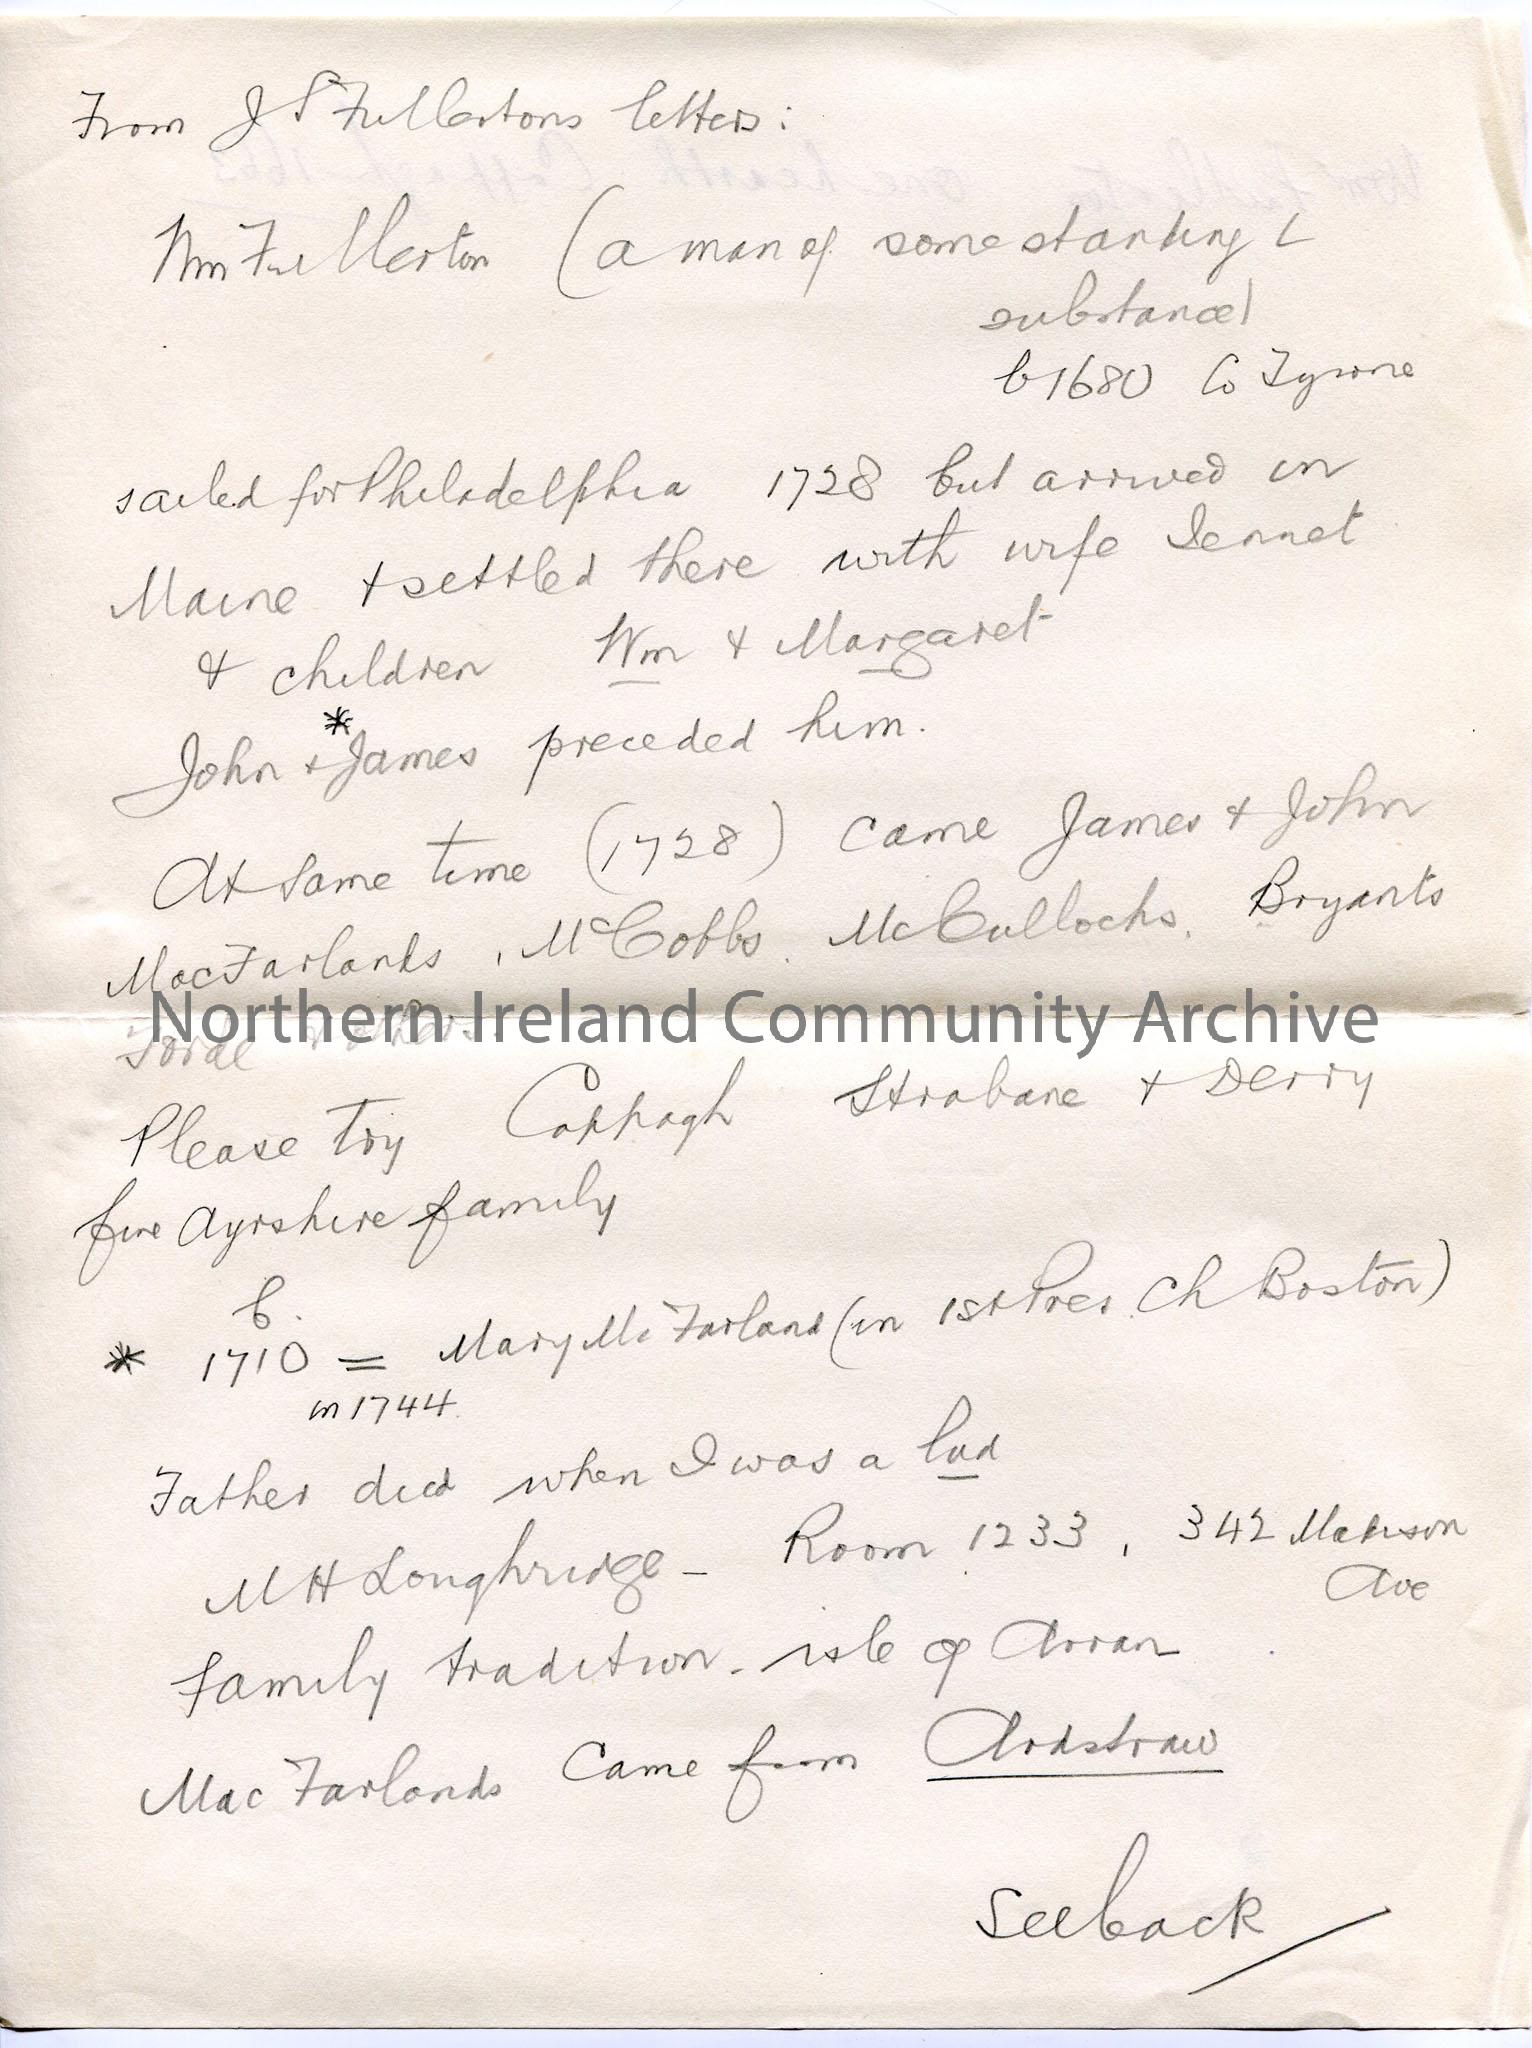 From J S Fullertons letters:
Wm Fullerton (a man of some standing &
substance)
b 1680 Co Tyrone
sailed for Philadelphia 1728 but arrived in
Maine & settled there with wife Jennet
& children Wm & Margaret
John & *James preceded him.
At same time (1728) came James & John
MacFarlands, McCobbs. McCullochs. Bryants
Northern Ireland Community Archive
Please try Cappagh Strabane & Derry
fine Ayrshire family
b.
* 1710 = Mary McFarland (in 1st Pres. Ch Boston)
in 1744.
Father died when I was a lad
M H Loughridge - Room 1233, 342 Madison
Ave
Family tradition - isle of Arran
MacFarlands came from Ardstraw
See back